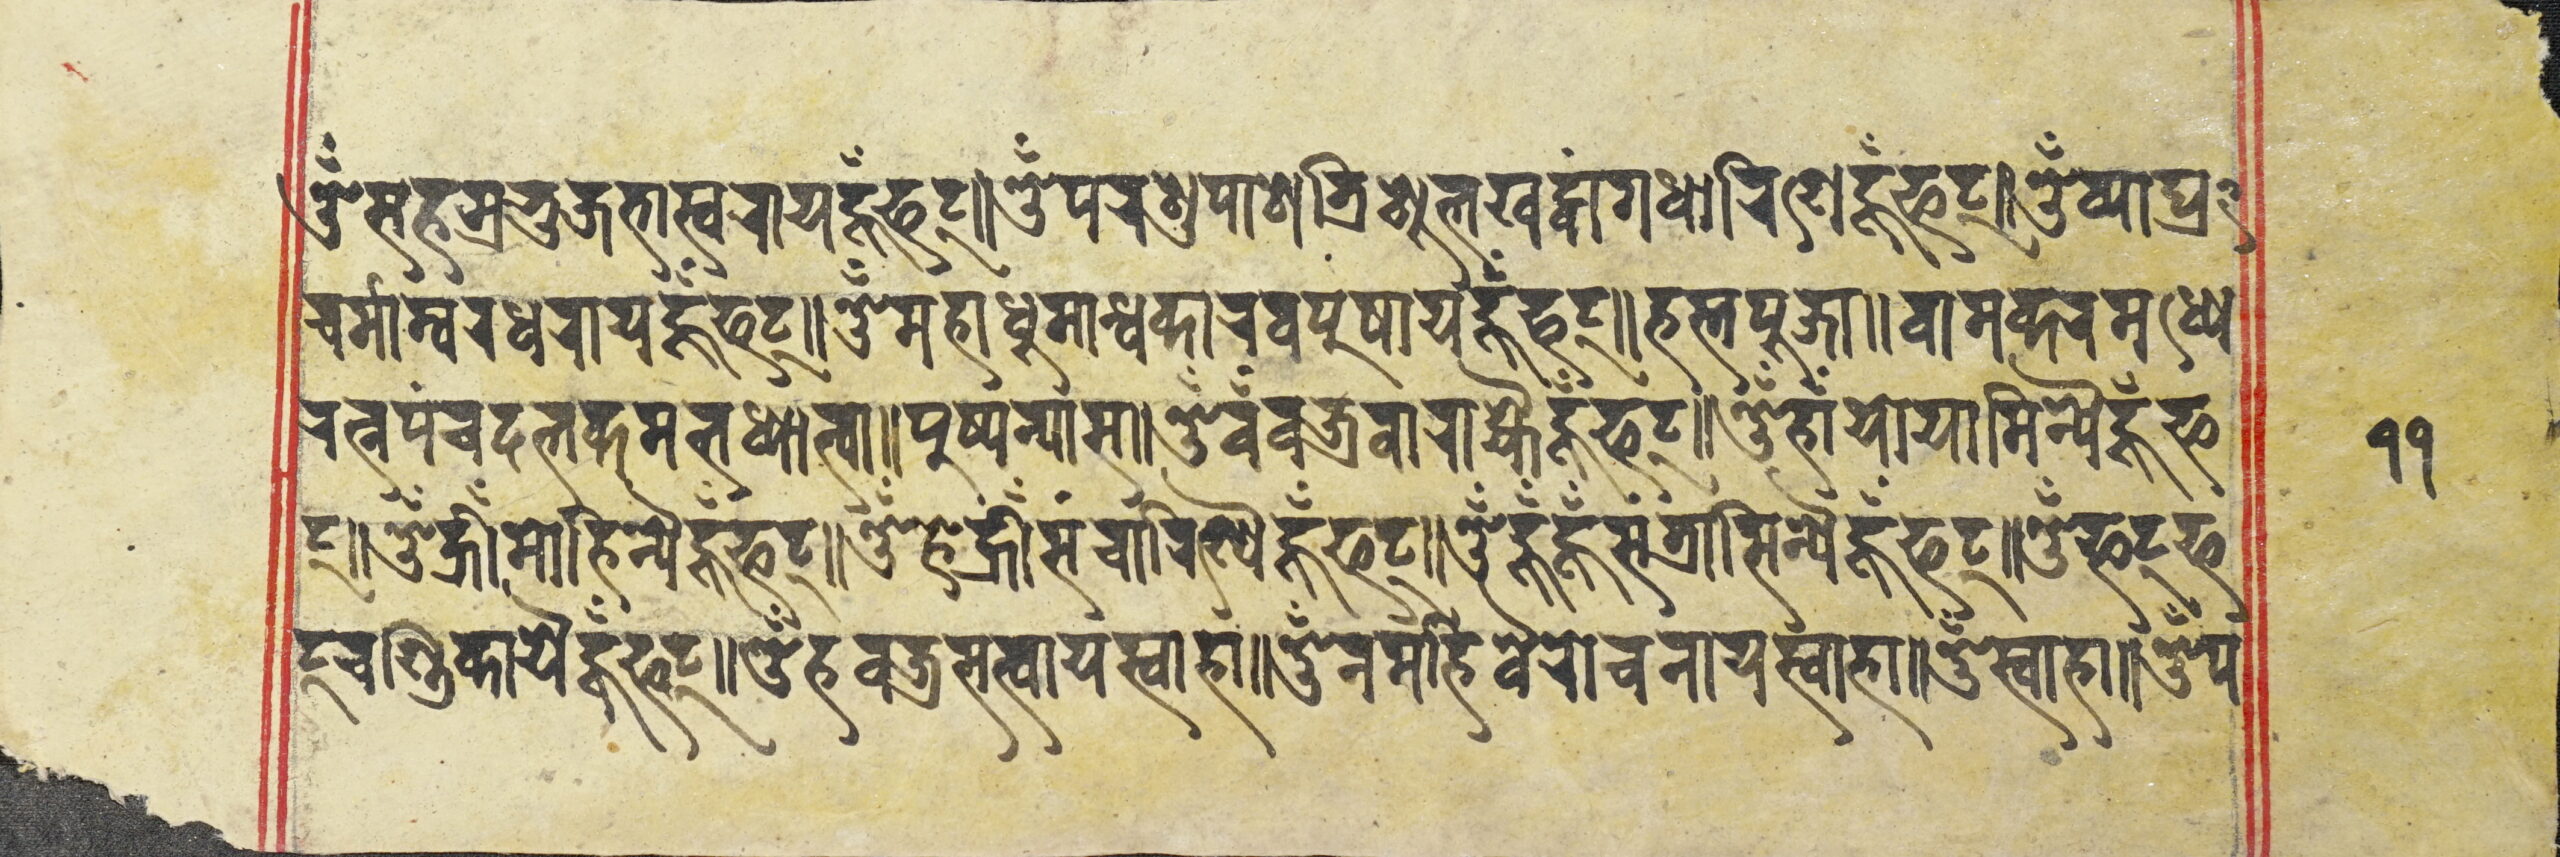 ॐसहस्रभुजभास्वरायहूँफट्॥ॐपरशुपाशत्रिशूलखट्वांगधारिणेहूँफट्॥ॐव्याघ्र
चर्माम्वरधरायहूँफट्॥ॐमहाधूमान्धकारवपुषायहूँफट्॥हस्तपूजा॥वामकरमध्ये
रत्नपंचदलकमलध्यात्वा॥पुष्पन्यास॥ॐवंवज्रवाराह्यैहूँफट्॥ॐहांयोयामिन्यैहूँफ
ट्॥ॐह्रीँमोहिन्यैहूँफट्॥ॐह्रेह्रीँसंचारिण्यैहूँफट्॥ॐहूँहूँसंत्रासिन्यैहूँफट्॥ॐफट्फ
ट्चण्डिकायैहूँफट्॥ॐहवज्रसत्वायस्वाहा॥ॐनमहिवैरोचनायस्वाहा॥ॐस्वाहा॥ॐय
११